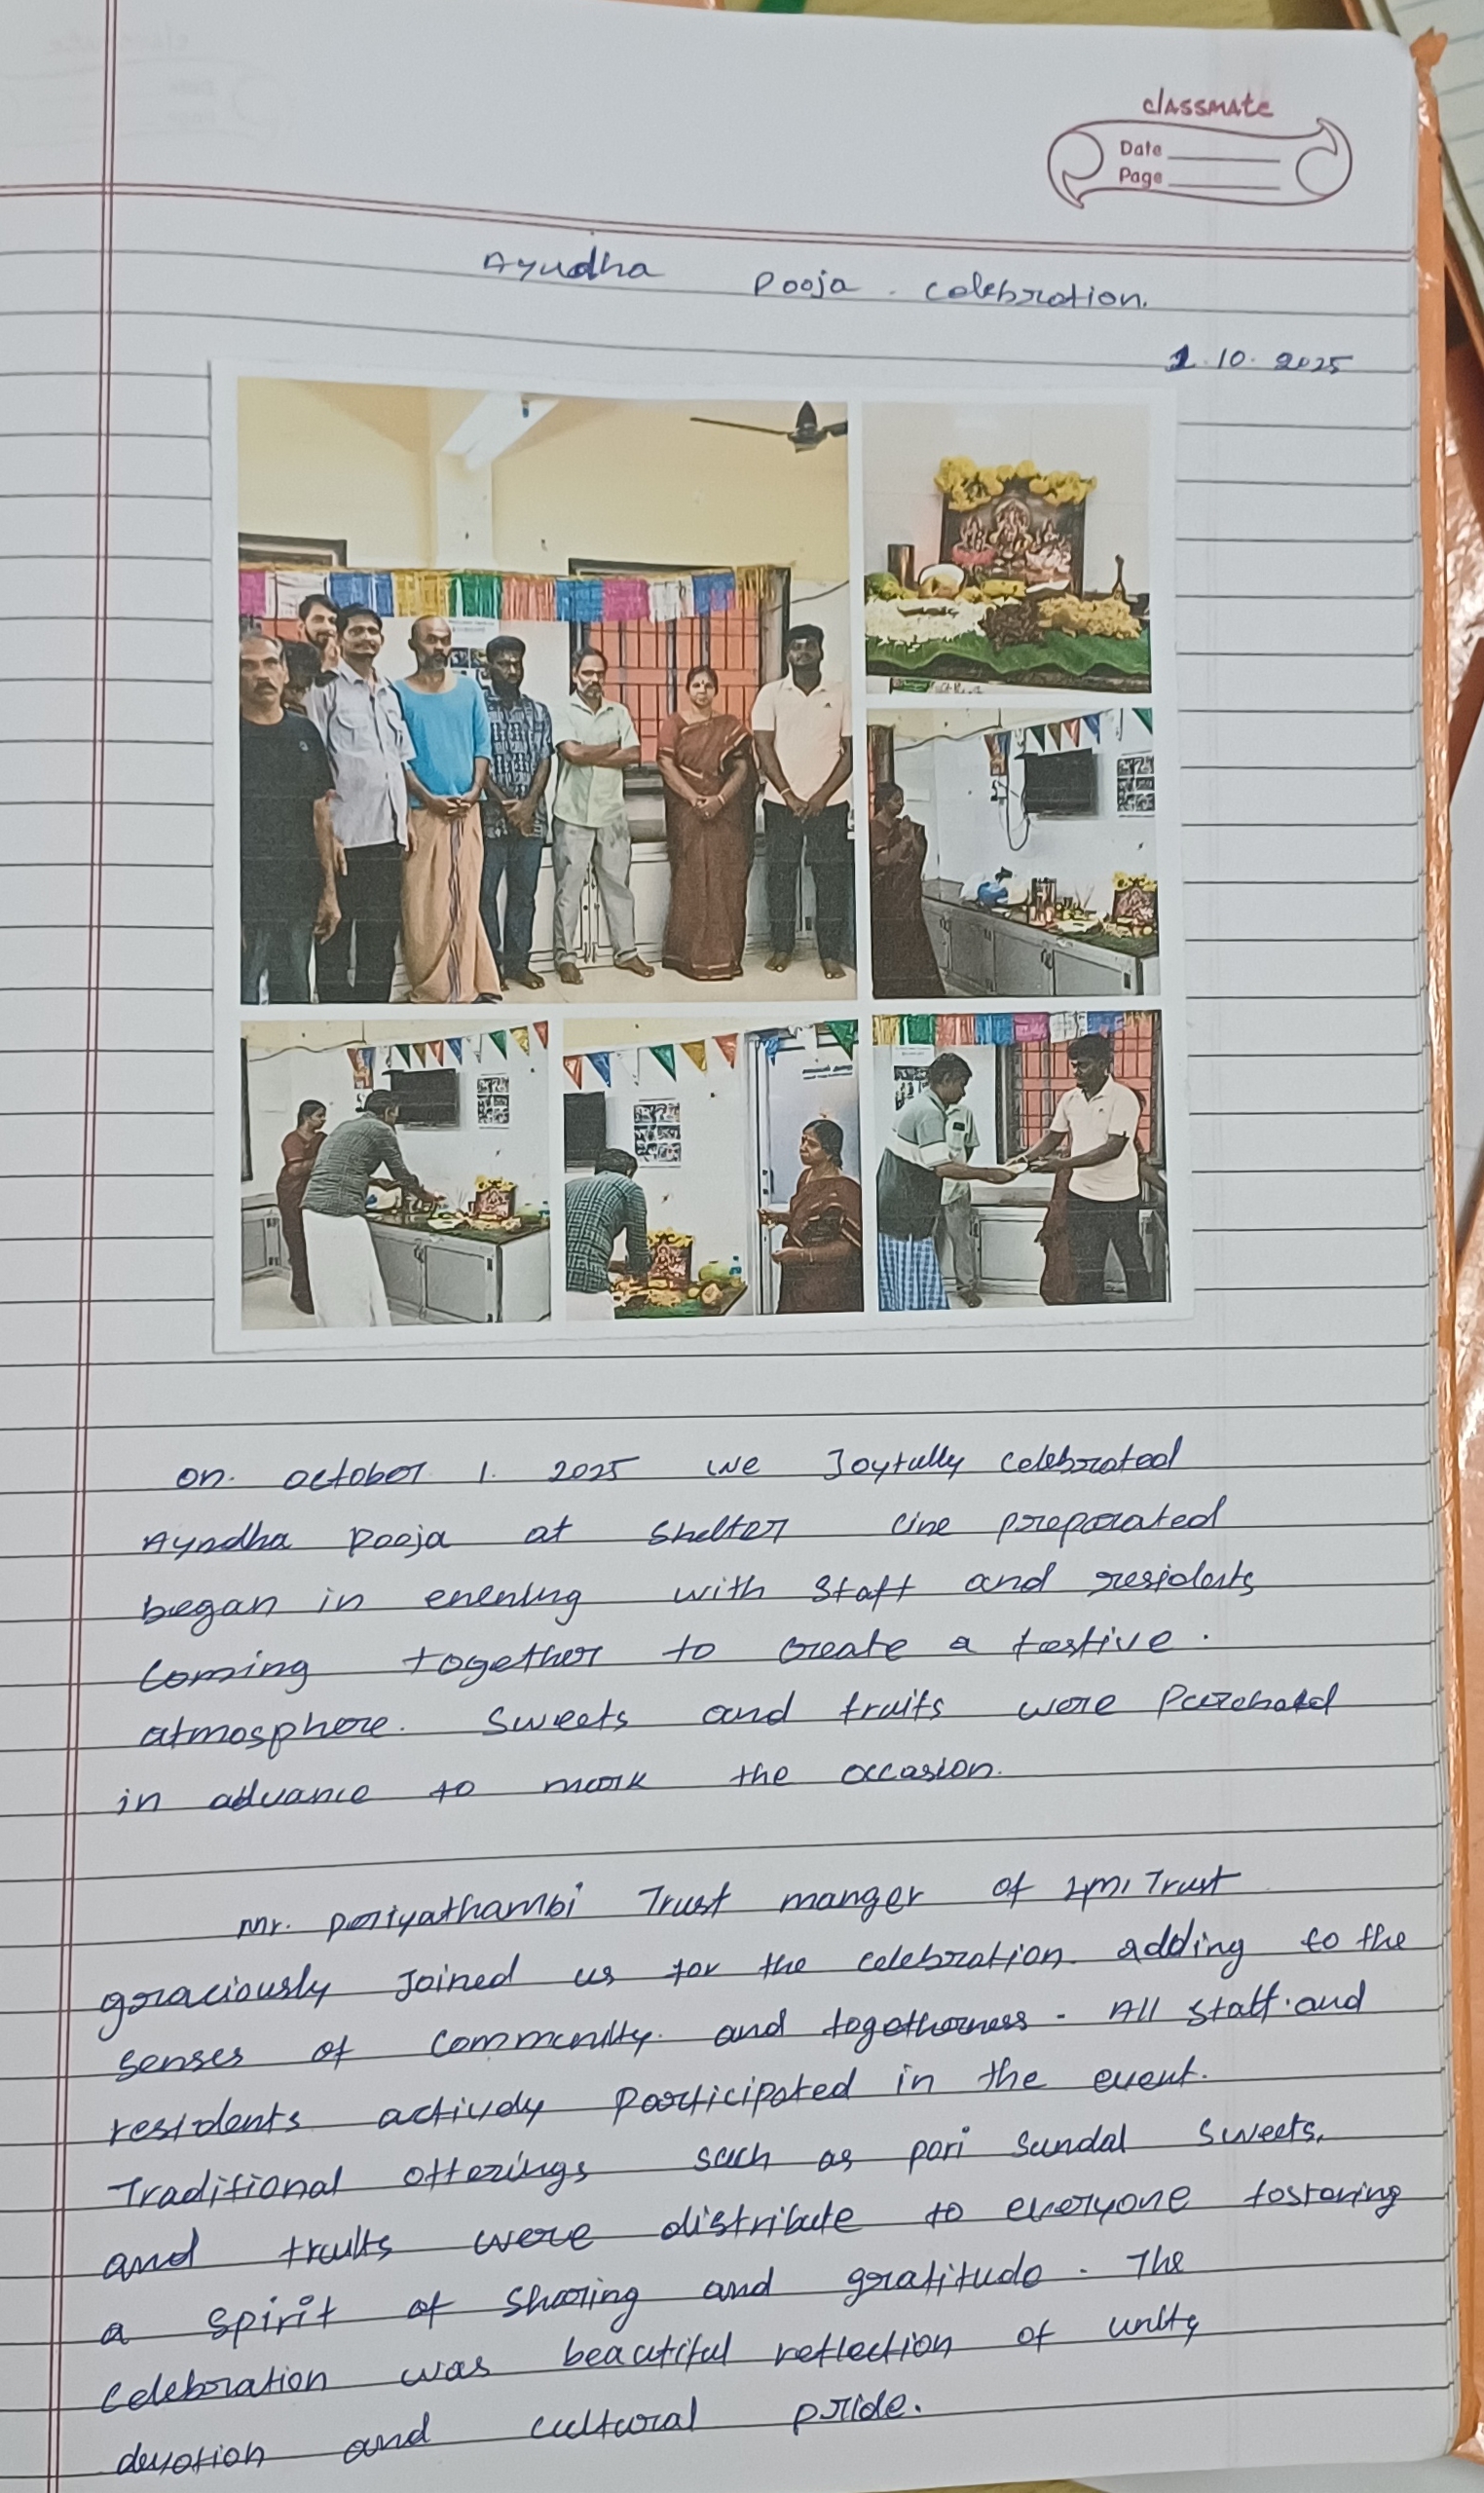 classmate
Date
Page
Ayudha Pooja celebration.
1.10.2025
on october 1. 2025 we Joyfully celebrated
Ayudha pooja at shelter preparated
began in evening with staff and residents
coming together to create a festive.
atmosphere. Sweets and fruits were purchased
in advance to mark the occasion.
Mr. periyathambi Trust manger of Trust
graciously joined us for the celebration. adding to the
senses of community. and togetherness. All staff and
residents actively participated in the event.
Traditional offerings such as pori sundal sweets,
and fruits were distribute to everyone fostering
a spirit of sharing and gratitude. The
celebration was beautiful reflection of unity
devotion and cultural pride.